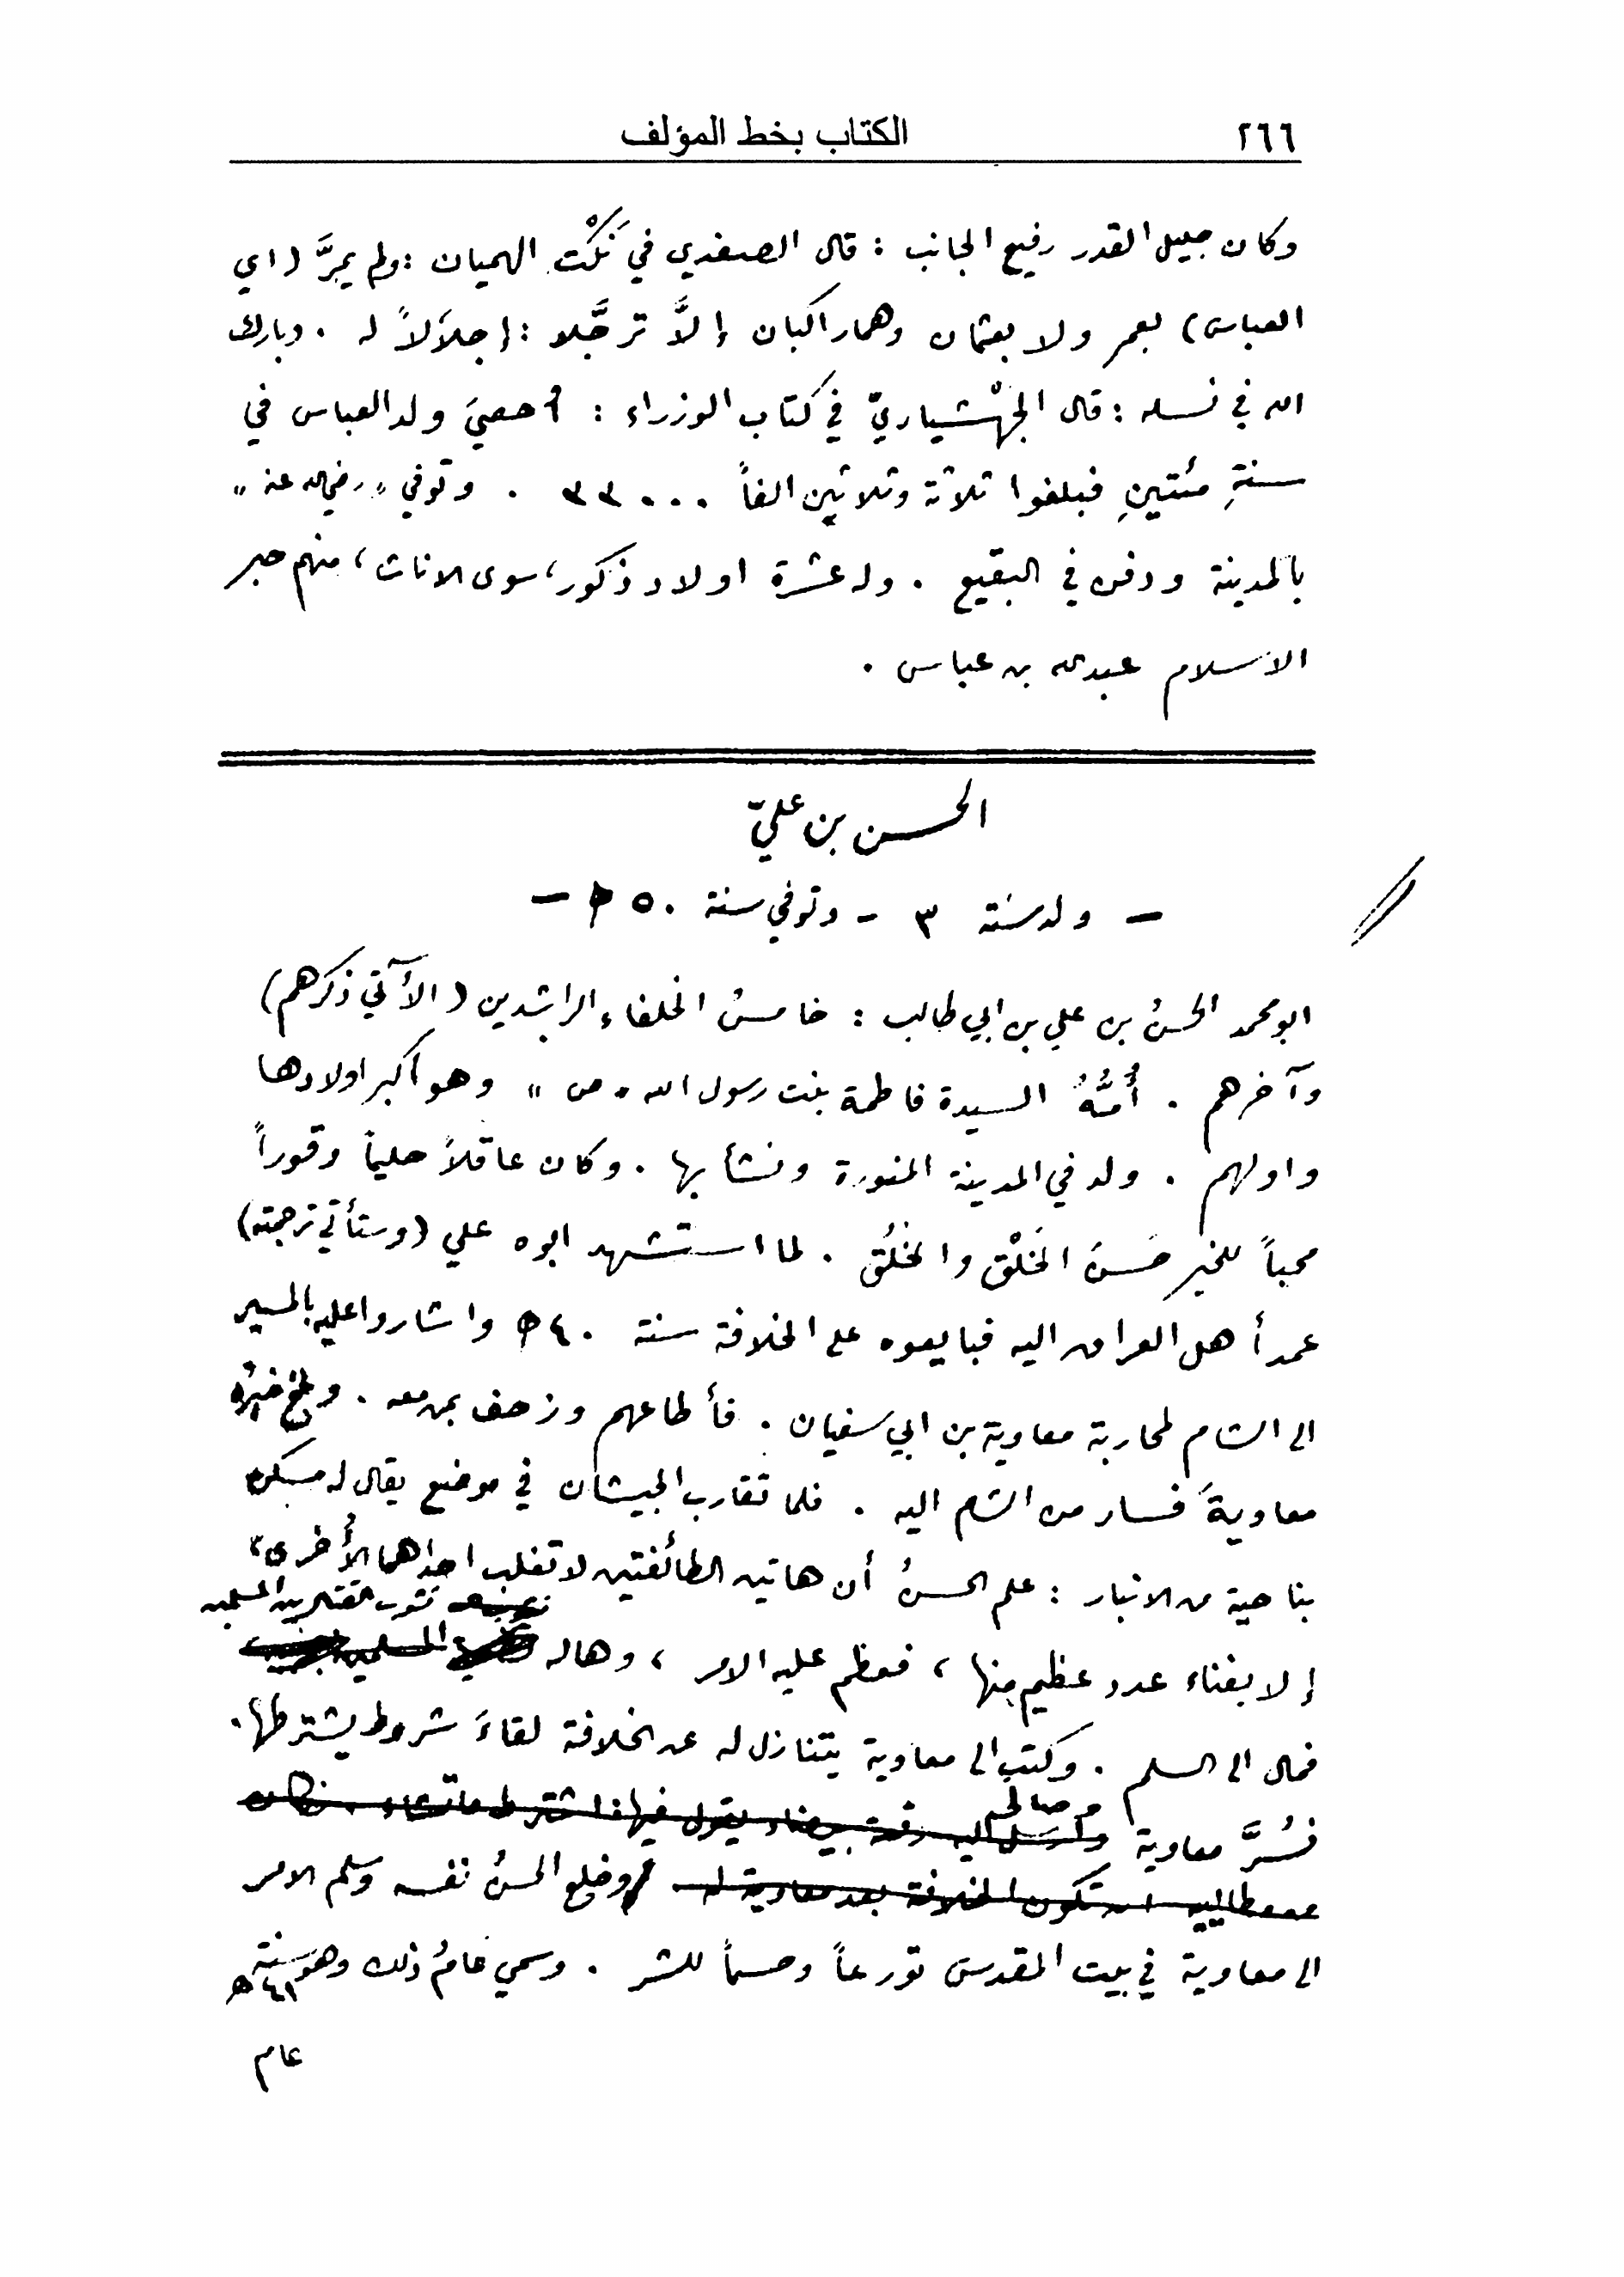 ٢٦٦ الكتاب بخط المؤلف
وكان جليل القدر رفيع الجانب : قال الصفدي في نَكْت الهميان : ولم يمرَّ (اي
العباس) بعمر ولا بعثمان وهما راكبان إلاَّ ترجَّلا : إجلاَلاً له . وبارك
الله في نسله : قال الجهْشياريّ في كتاب الوزراء : أحصيَ ولد العباس في
سنةِ مئتينِ فبلغوا ثلاثة وثلاثين الفاً ٣٣٠٠٠ . وتوفي "رضي الله عنه"
بالمدينة ودفن في البقيع . وله عشرة اولاد ذكور، سوى الاناث، منهم حبر
الاسلام عبد الله بن عباس .
الحسن بن عليّ
– ولد سنة ٣ – وتوفي سنة ٥٠ ه –
ابو محمد الحسنُ بن علي بن ابي طالب : خامسُ الخلفاء الراشدين (الآتي ذكرهم)
وآخرهم . أُمُّهُ السيدة فاطمة بنت رسول الله "ص" وهو أكبر اولادها
واولهم . ولد في المدينة المنورة ونشأ بها . وكان عاقلاً حليماً وقوراً
محباً للخير حَسَنَ الخَلْق والخُلُق . لما استشهد ابوه علي (وستأتي ترجمته)
عمد أهل العراق اليه فبايعوه على الخلافة سنة ٤٠ ه واشاروا عليه بالمسير
الى الشام لمحاربة معاوية بن ابي سفيان . فأطاعهم وزحف بمن معه . وبلغ خبرُه
معاويةَ فسار من الشام اليه . فلما تقارب الجيشان في موضع يقال له مسكن
بناحية من الانبار : علم الحسنُ أن هاتين الطائفتين لا تغلب احداهما الأُخرى
نشوب القتال بين المسلمين
إلا بفناء عدد عظيم منها ، فعظم عليه الامر ، وهاله
فمال الى السلم . وكتب الى معاوية يتنازل له عن الخلافة لقاءَ شروط يشترطها.
وصالحه
فسُرَّ معاوية وأرسل اليه رقعة بيضاء يقول فيها اشترط ما تشاء . فكان
من مطاليبه ان تكون الخلافة بعد معاوية له . وخلع الحسنُ نفسه وسلم الامر
الى معاوية في بيت المقدس تورعاً وحسماً للشر . وسمي عامُ ذلك وهو سنة
٤١ ه
عام